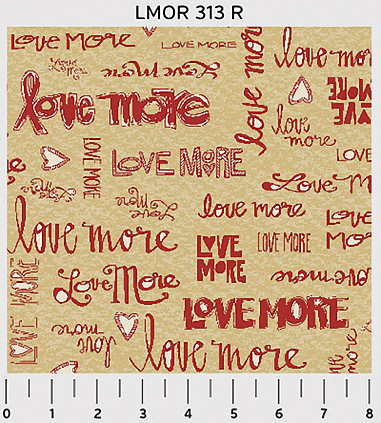 LMOR 313 R
Love More
LOVE MORE
love mor
Love More
love more
love more
love mor
LOVE MORE
love
more
LOVE MORE
LOVE MORE
LOVE
Love M
Love More
Love More
love more
LOVE
MO
love more
LOVE
MORE
LOVE MORE
love more
LOVE MORE
Love More
LOVE MORE
love mor
love more
0 1 2 3 4 5 6 7 8